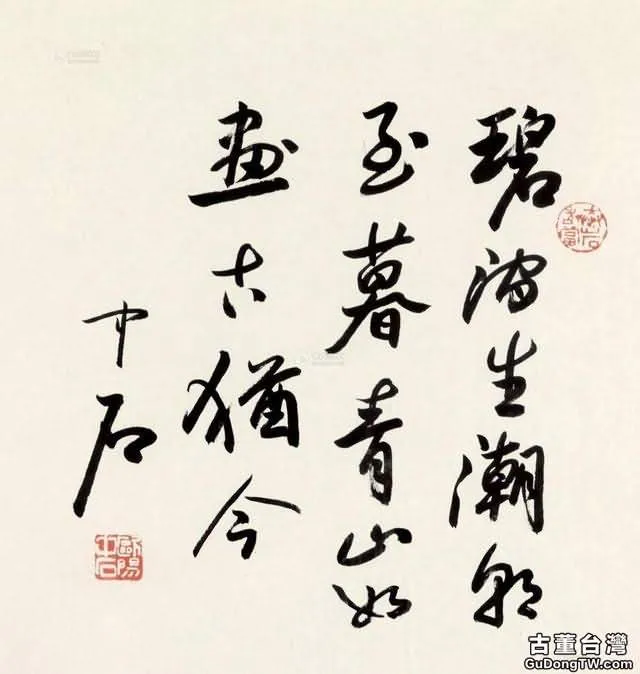 碧海生潮朝
至暮青山如
畫古猶今
中石
歐陽中石
古董台灣
GuDongTW.com